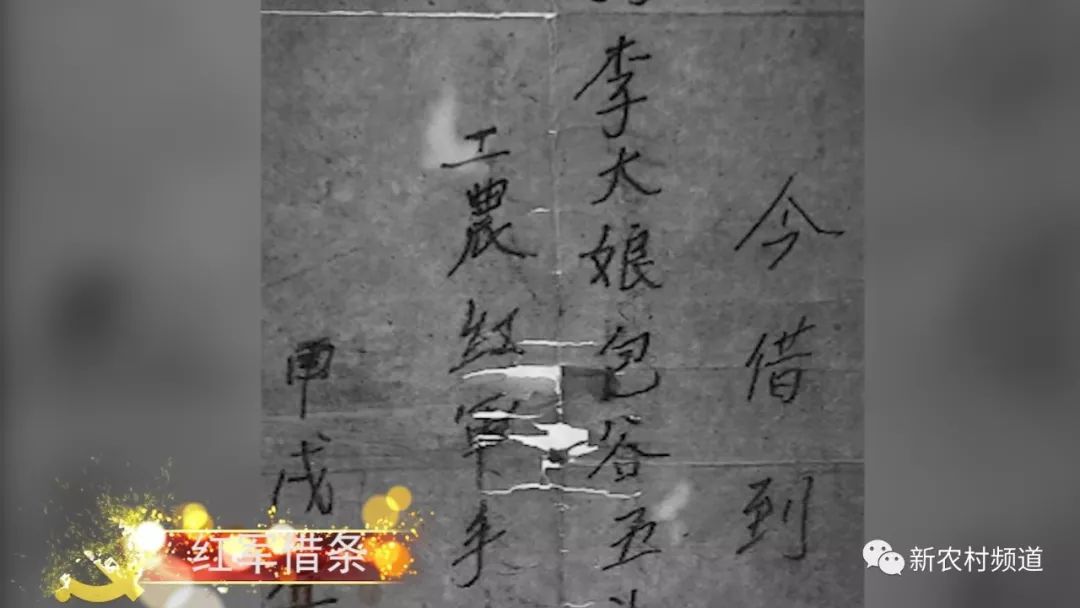 今借到
李大娘包谷五
工農紅軍手
甲戌
红军借条
新农村频道